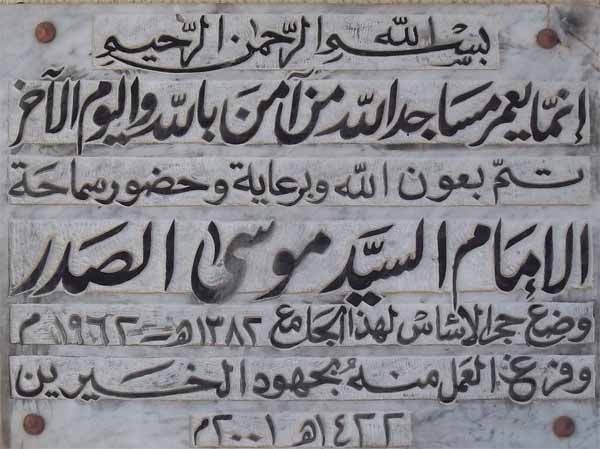 بسم الله الرحمن الرحيم
إنما يعمر مساجد الله من آمن بالله واليوم الآخر
تمّ بعون الله وبرعاية وحضور سماحة
الإمام السيّد موسى الصدر
وضع حجر الأساس لهذا الجامع ١٣٨٢هـ – ١٩٦٢م
وفرغ العمل منه بجهود الخيرين
١٤٢٢هـ ٢٠٠١م